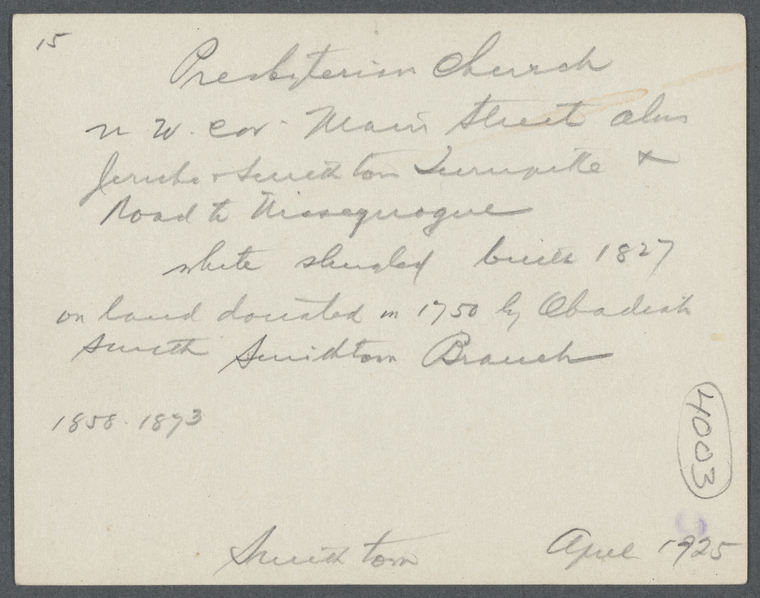 15
Presbyterian Church
N W. cor. Main Street also
Jericho & Smithtown Turnpike &
Road to Nissequogue
white shingled built 1827
on land donated in 1750 by Obadiah
Smith Smithtown Branch
1858-1873
4003
Smithtown April 1925